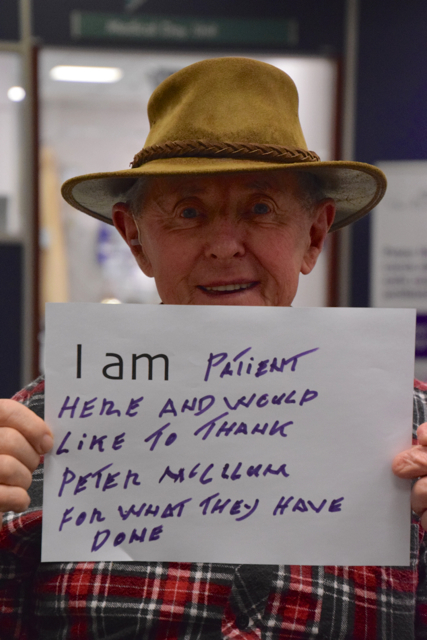 Medical Day Unit
I am PATIENT
HERE AND WOULD
LIKE TO THANK
PETER MCCLLUM
FOR WHAT THEY HAVE
DONE